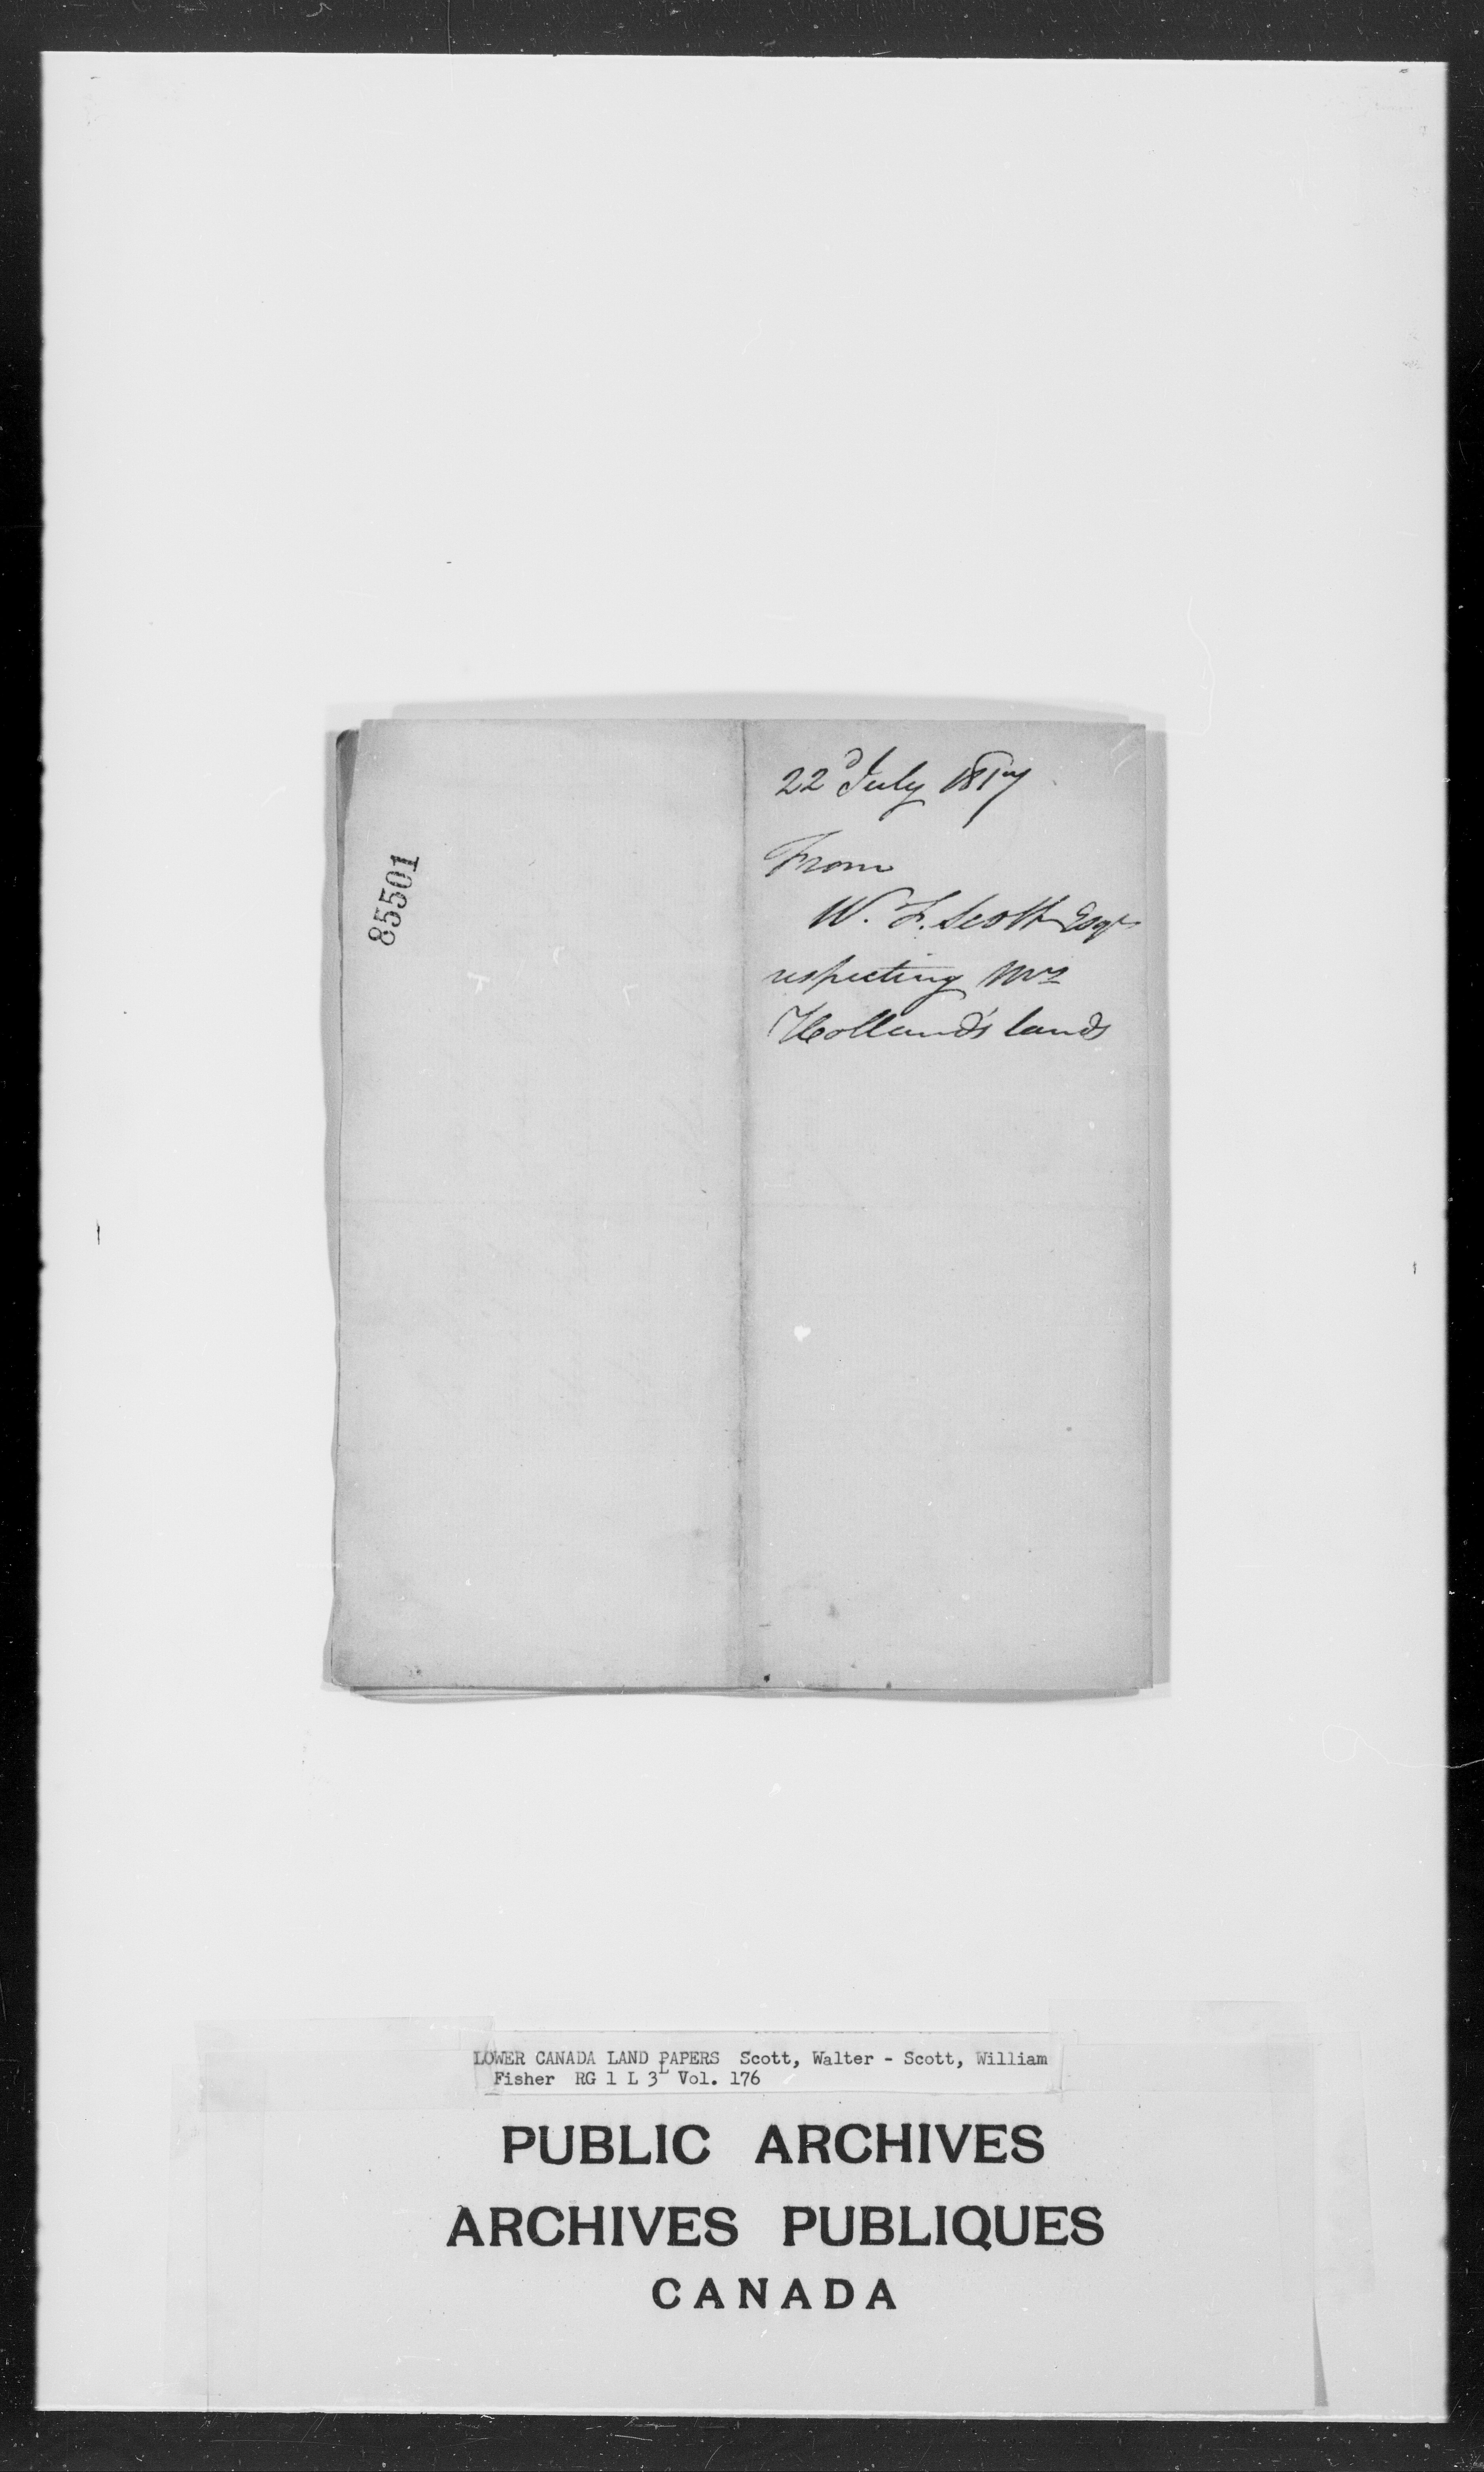 85501
22d July 1817
From
W. F. Scott Esqr
respecting Mrs
Holland's lands
LOWER CANADA LAND PAPERS Scott, Walter - Scott, William
Fisher RG 1 L 3L Vol. 176
PUBLIC ARCHIVES
ARCHIVES PUBLIQUES
CANADA